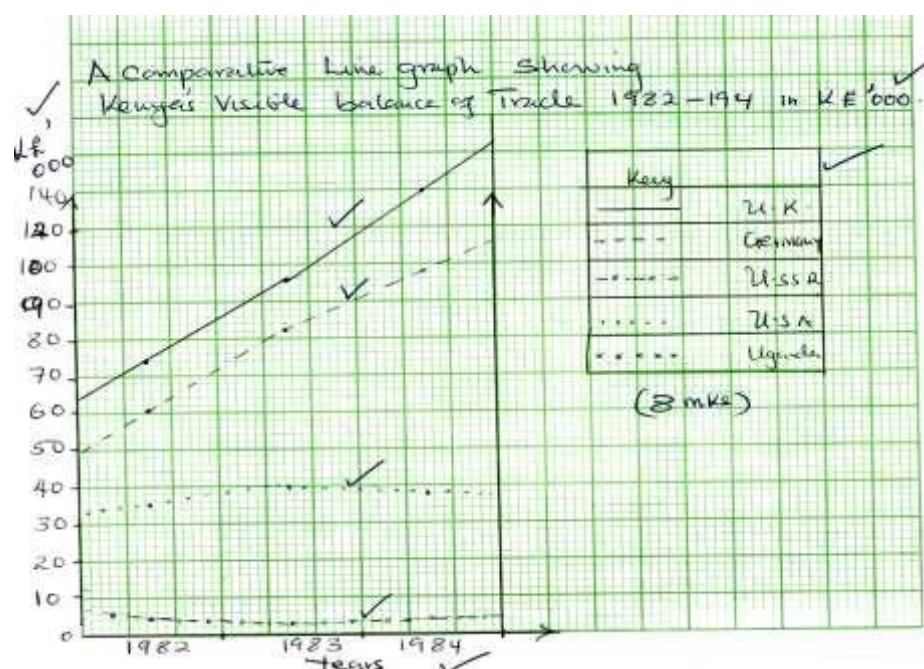 A Comparative Line graph Showing
Kenya's Visible balance of Trade 1982-194 in K£'000.
K£'
000
140
120
100
90
80
70
60
50
40
30
20
10
0
1982
1983
1984
Years
Key
U.K
Germany
U.SSR
U.S.A
Uganda
(8mks)